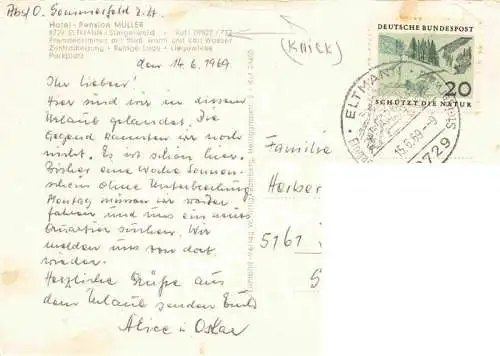 Abs. O. Sommerfeld z. Zt.
Hotel - Pension MÜLLER
8729 ELTMANN / Steigerwald - Ruf 09522 / 752
Fremdenzimmer mit fließ. warm und kalt Wasser
Zentralheizung - Ruhige Lage - Liegewiese
Parkplatz
(Knick)
den 14.6.1969
Ihr Lieben!
Hier sind wir in diesem
Urlaub gelandet. Die
Gegend kannten wir noch
nicht. Es ist schön hier.
Bisher eine Woche Sonnen-
schein ohne Unterbrechung
Montag müssen wir weiter
fahren und uns ein neues
Quartier suchen. Wir
melden uns von dort
wieder.
Herzliche Grüße aus
dem Urlaub senden Euch
Alice u. Oskar
Familie
Herber
5161
S
DEUTSCHE BUNDESPOST
20
SCHÜTZT DIE NATUR
ELTMANN
15.6.69 - 9
8729